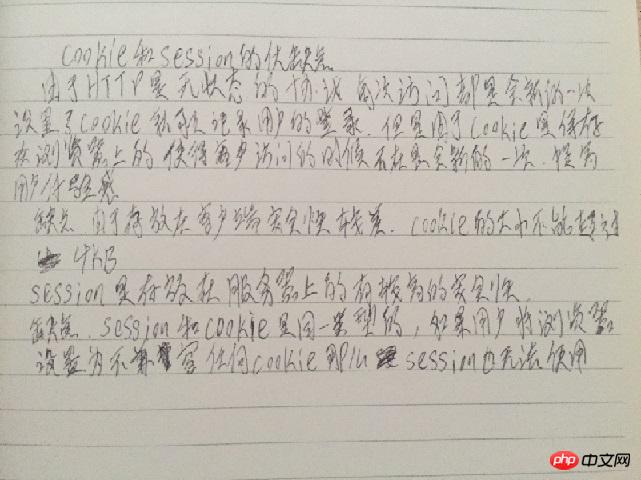 cookie和session的优缺点
由于HTTP是无状态的协议 每次访问都是全新的一次
设置了cookie就可以记录用户的登录.但是由于cookie是保存
在浏览器上的 使得客户访问的时候不在是全新的一次.提高
用户体验感
缺点 由于存放在客户端 安全性较差. cookie的大小不能超过
4KB
session是存放在服务器上的有较高的安全性.
缺点. session和cookie是同一类型的, 如果用户将浏览器
设置为不兼容任何cookie 那么 session也无法使用
php 中文网